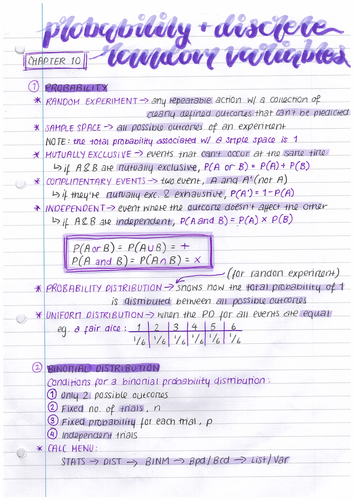 probability + discrete
random variables
CHAPTER 10
① PROBABILITY
* RANDOM EXPERIMENT → any repeatable action w/ a collection of
clearly defined outcomes that can't be predicted
* SAMPLE SPACE → all possible outcomes of an experiment
NOTE: the total probability associated w/ a smple space is 1
* MUTUALLY EXCLUSIVE → events that can't occur at the same time
↳ if A&B are mutually exclusive, P(A or B) = P(A) + P(B)
* COMPLIMENTARY EVENTS → two event, A and A' (not A)
↳ if they're mutually exc. & exhaustive, P(A') = 1-P(A)
* INDEPENDENT → event where the outcome doesn't affect the other
↳ if A&B are independent, P(A and B) = P(A) × P(B)
P(A or B) = P(A∪B) = +
P(A and B) = P(A∩B) = ×
(for random experiment)
* PROBABILITY DISTRIBUTION → shows how the total probability of 1
is distributed between all possible outcomes
* UNIFORM DISTRIBUTION → when the PD for all events are equal
eg. a fair dice: 1 2 3 4 5 6
1/6 1/6 1/6 1/6 1/6 1/6
② BINOMIAL DISTRIBUTION
Conditions for a binomial probability distribution:
① Only 2 possible outcomes
② Fixed no. of trials, n
③ Fixed probability for each trial, p
④ Independent trials
* CALC MENU:
STATS → DIST → BINM → Bpd/Bcd → List/Var